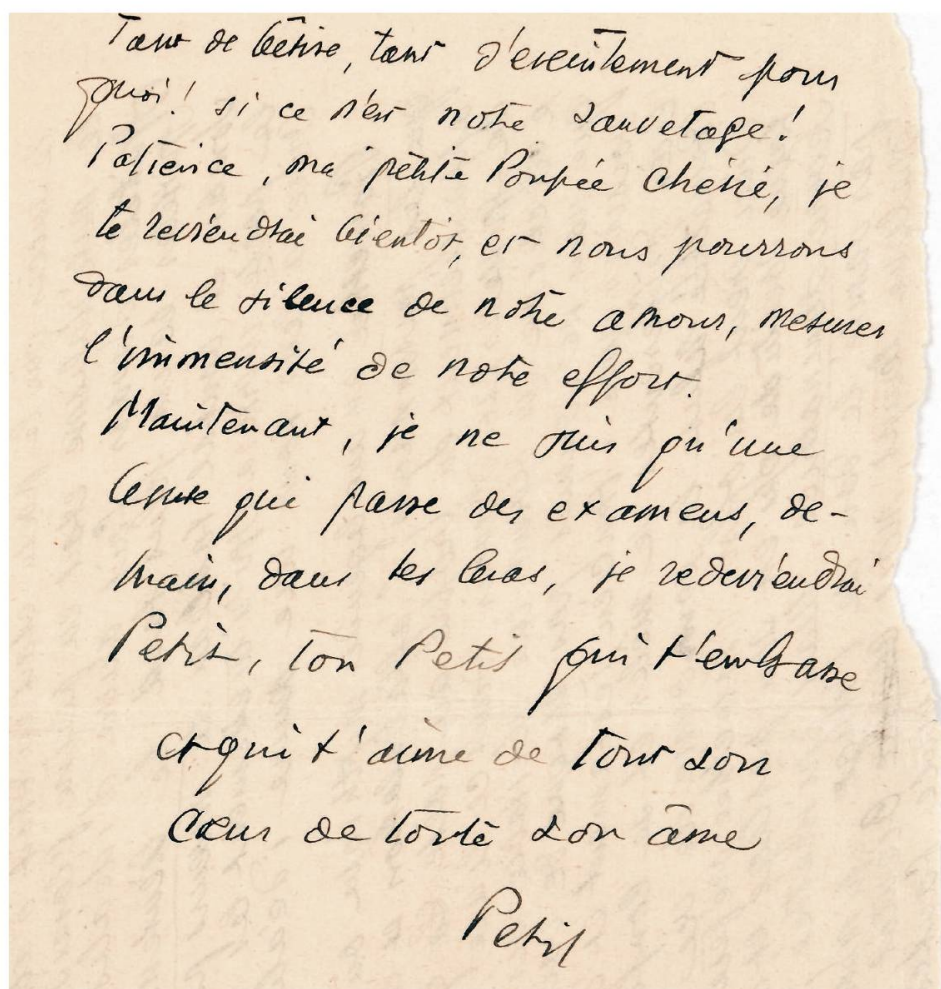 Tant de bêtise, tant d'ereintement pour
quoi! si ce n'est notre sauvetage!
Patience, ma petite Poupée chérie, je
te reviendrai bientôt, et nous pourrons
dans le silence de notre amour, mesurer
l'immensité de notre effort.
Maintenant, je ne suis qu'une
qui passe des examens, de-
main, dans tes bras, je redeviendrai
Petit, ton Petit qui t'embrasse
et qui t'aime de tout son
cœur de toute son âme
Petit